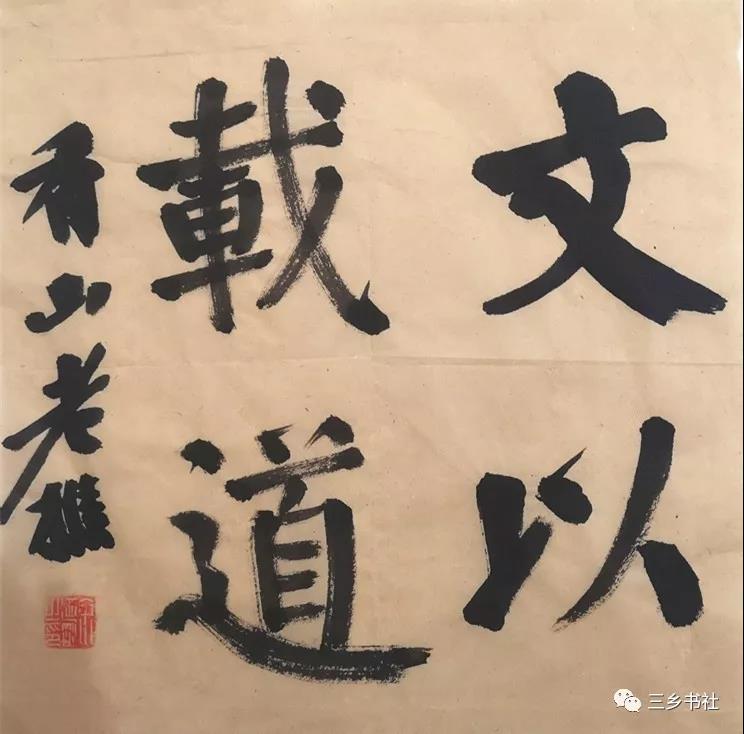 文以
載道
香山老樵
三乡书社